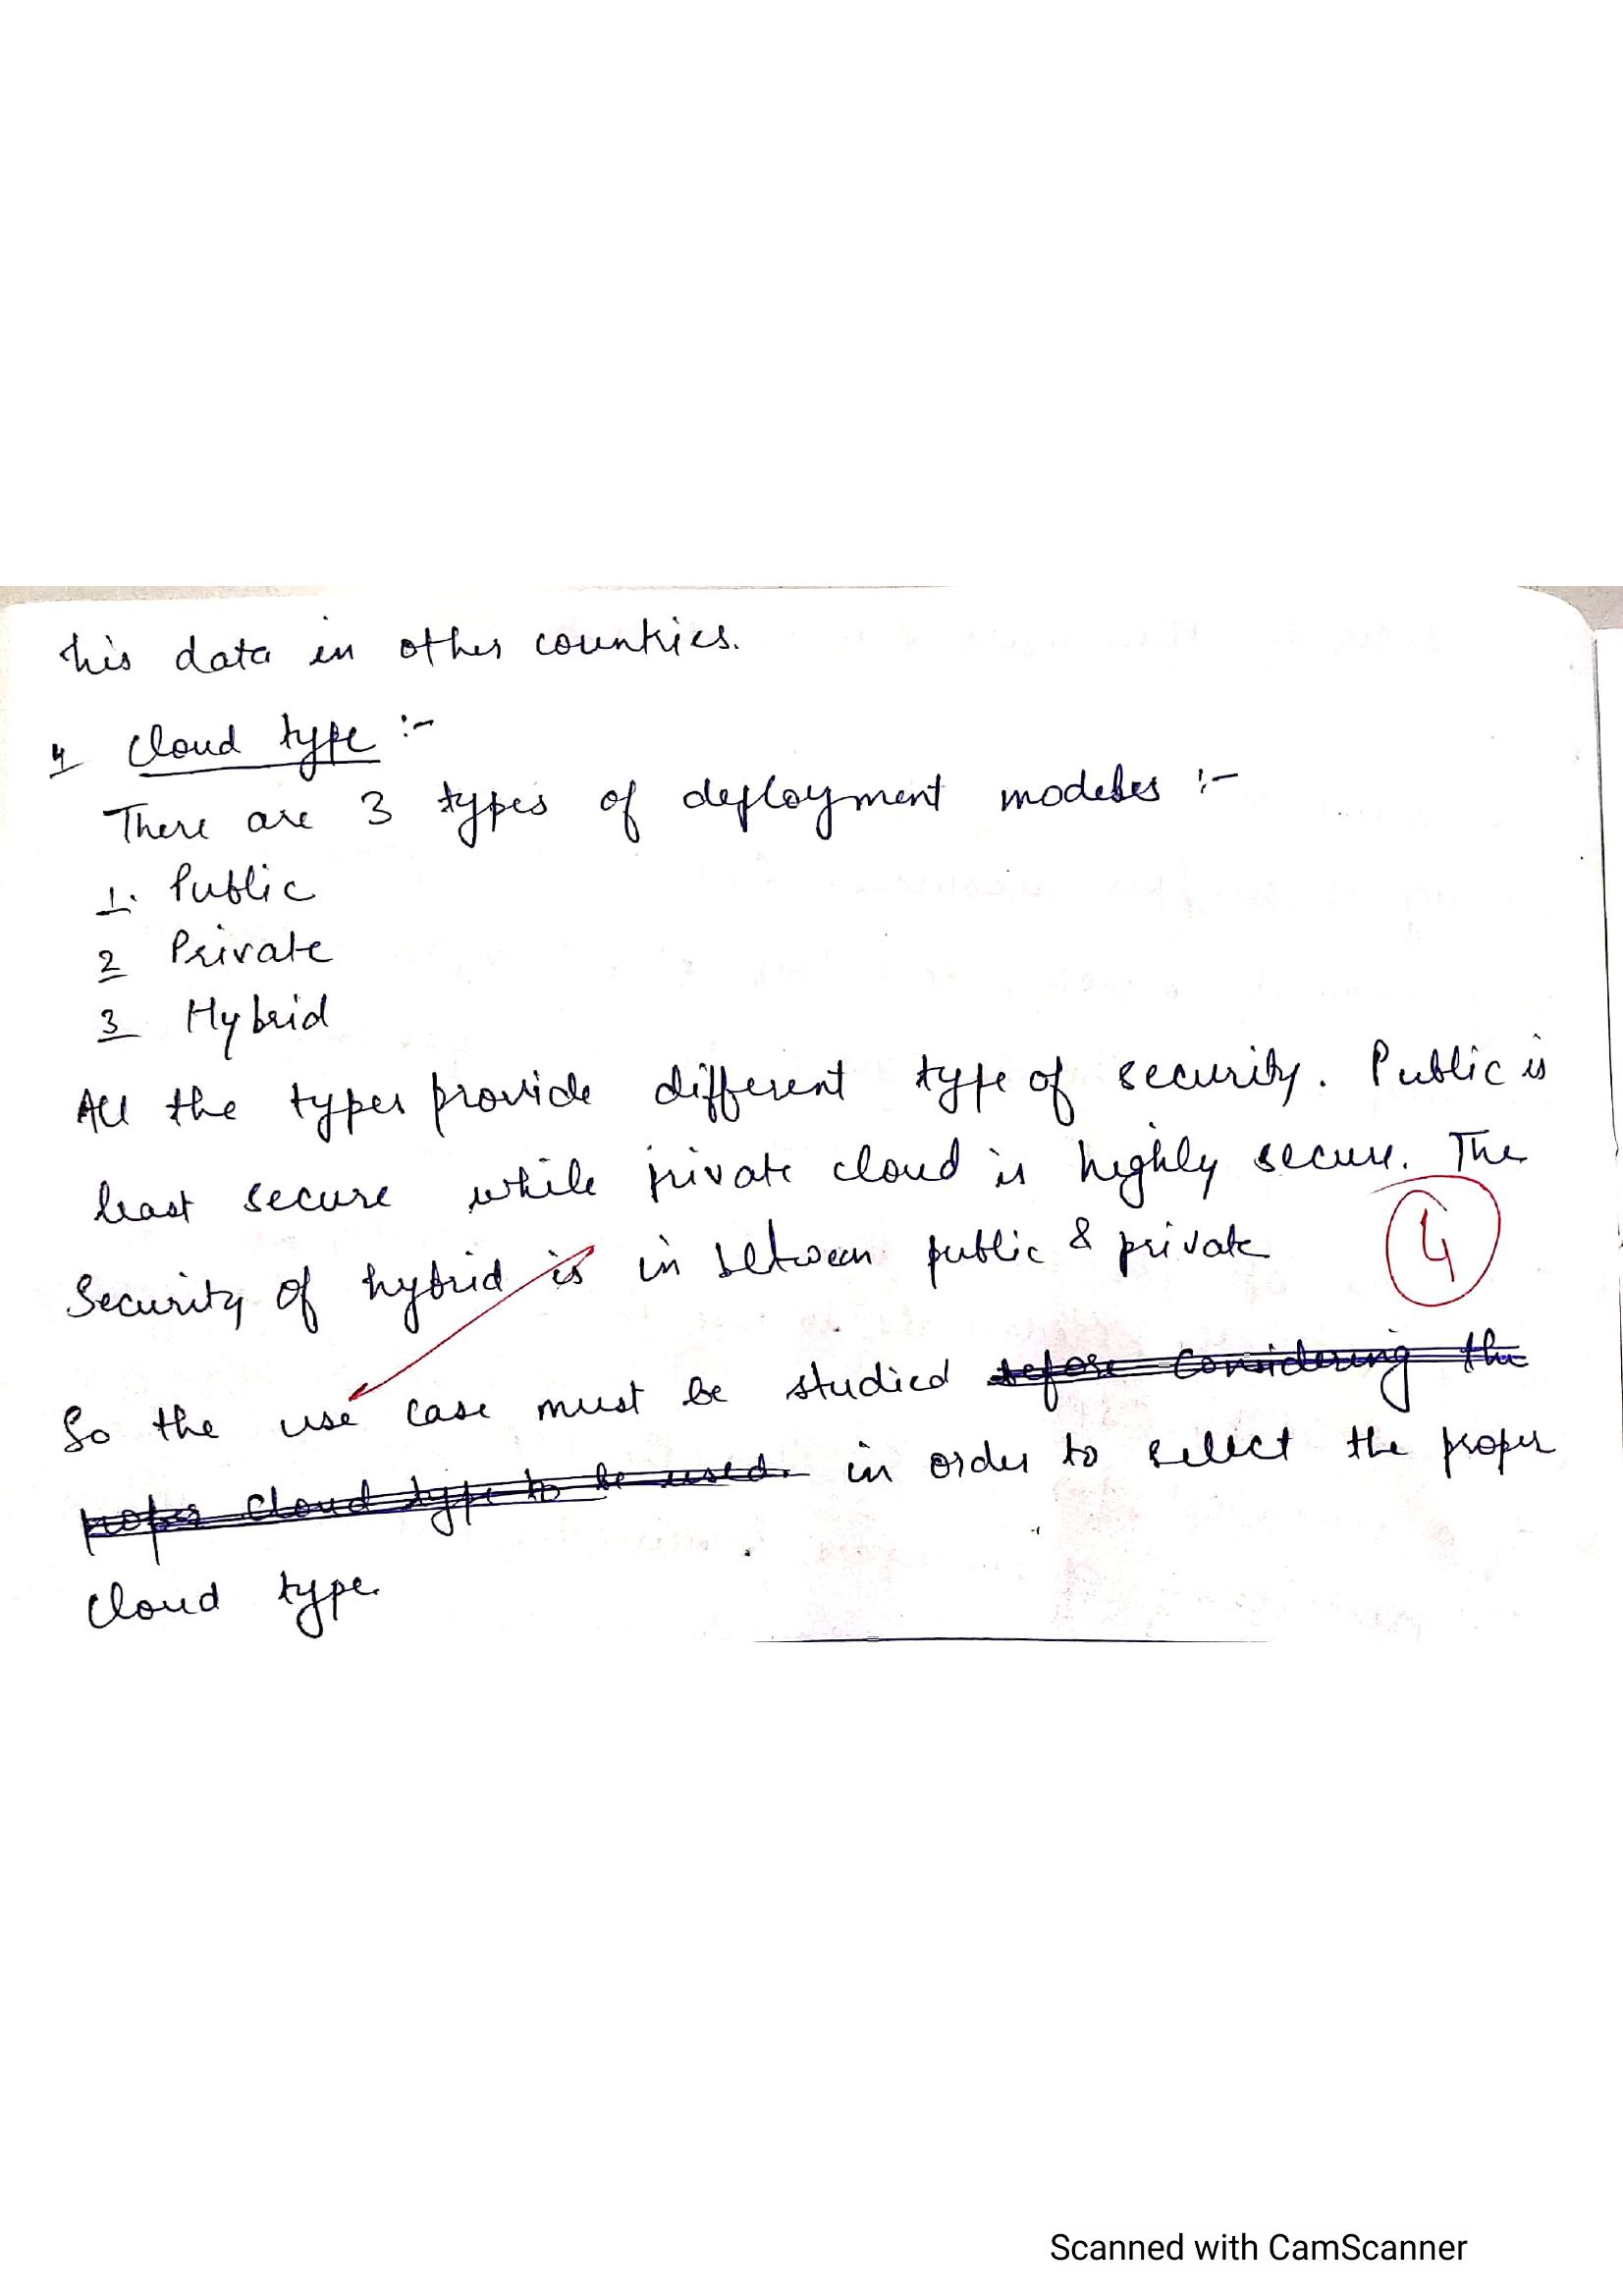 his data in other countries.
4 Cloud type :-
There are 3 types of deployment modeles :-
1. Public
2 Private
3 Hybrid
All the types provide different type of security. Public is
least secure while private cloud is highly secure. The
Security of hybrid is in between public & private
4
So the use case must be studied before considering the
proper cloud type to be used. in order to select the proper
cloud type.
Scanned with CamScanner